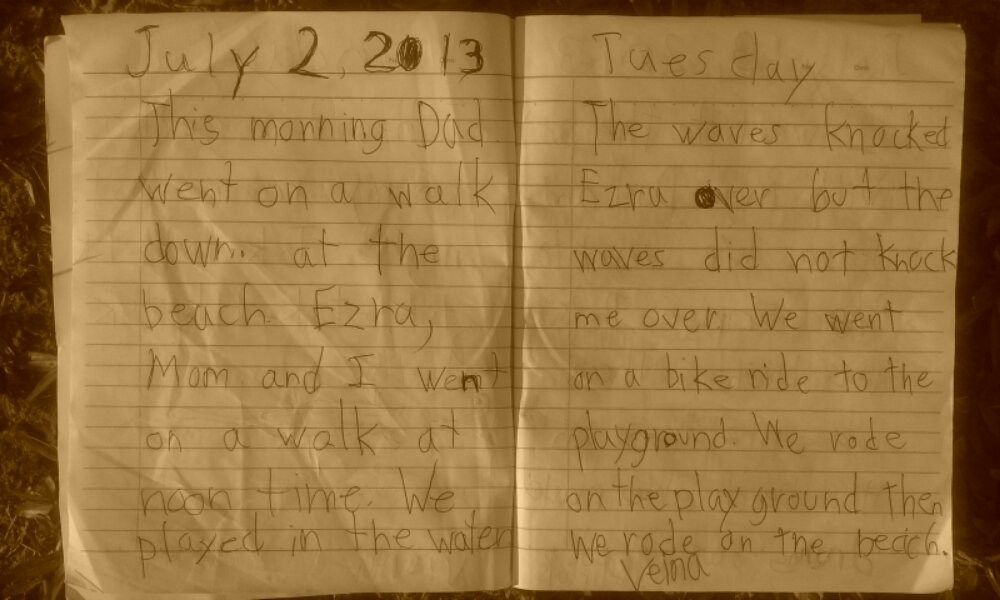 July 2, 2013
This morning Dad
went on a walk
down. at the
beach Ezra,
Mom and I went
on a walk at
noon time. We
played in the water
Tuesday
The waves knocked
Ezra over but the
waves did not knock
me over. We went
on a bike ride to the
playground. We rode
on the play ground then
we rode on the beach.